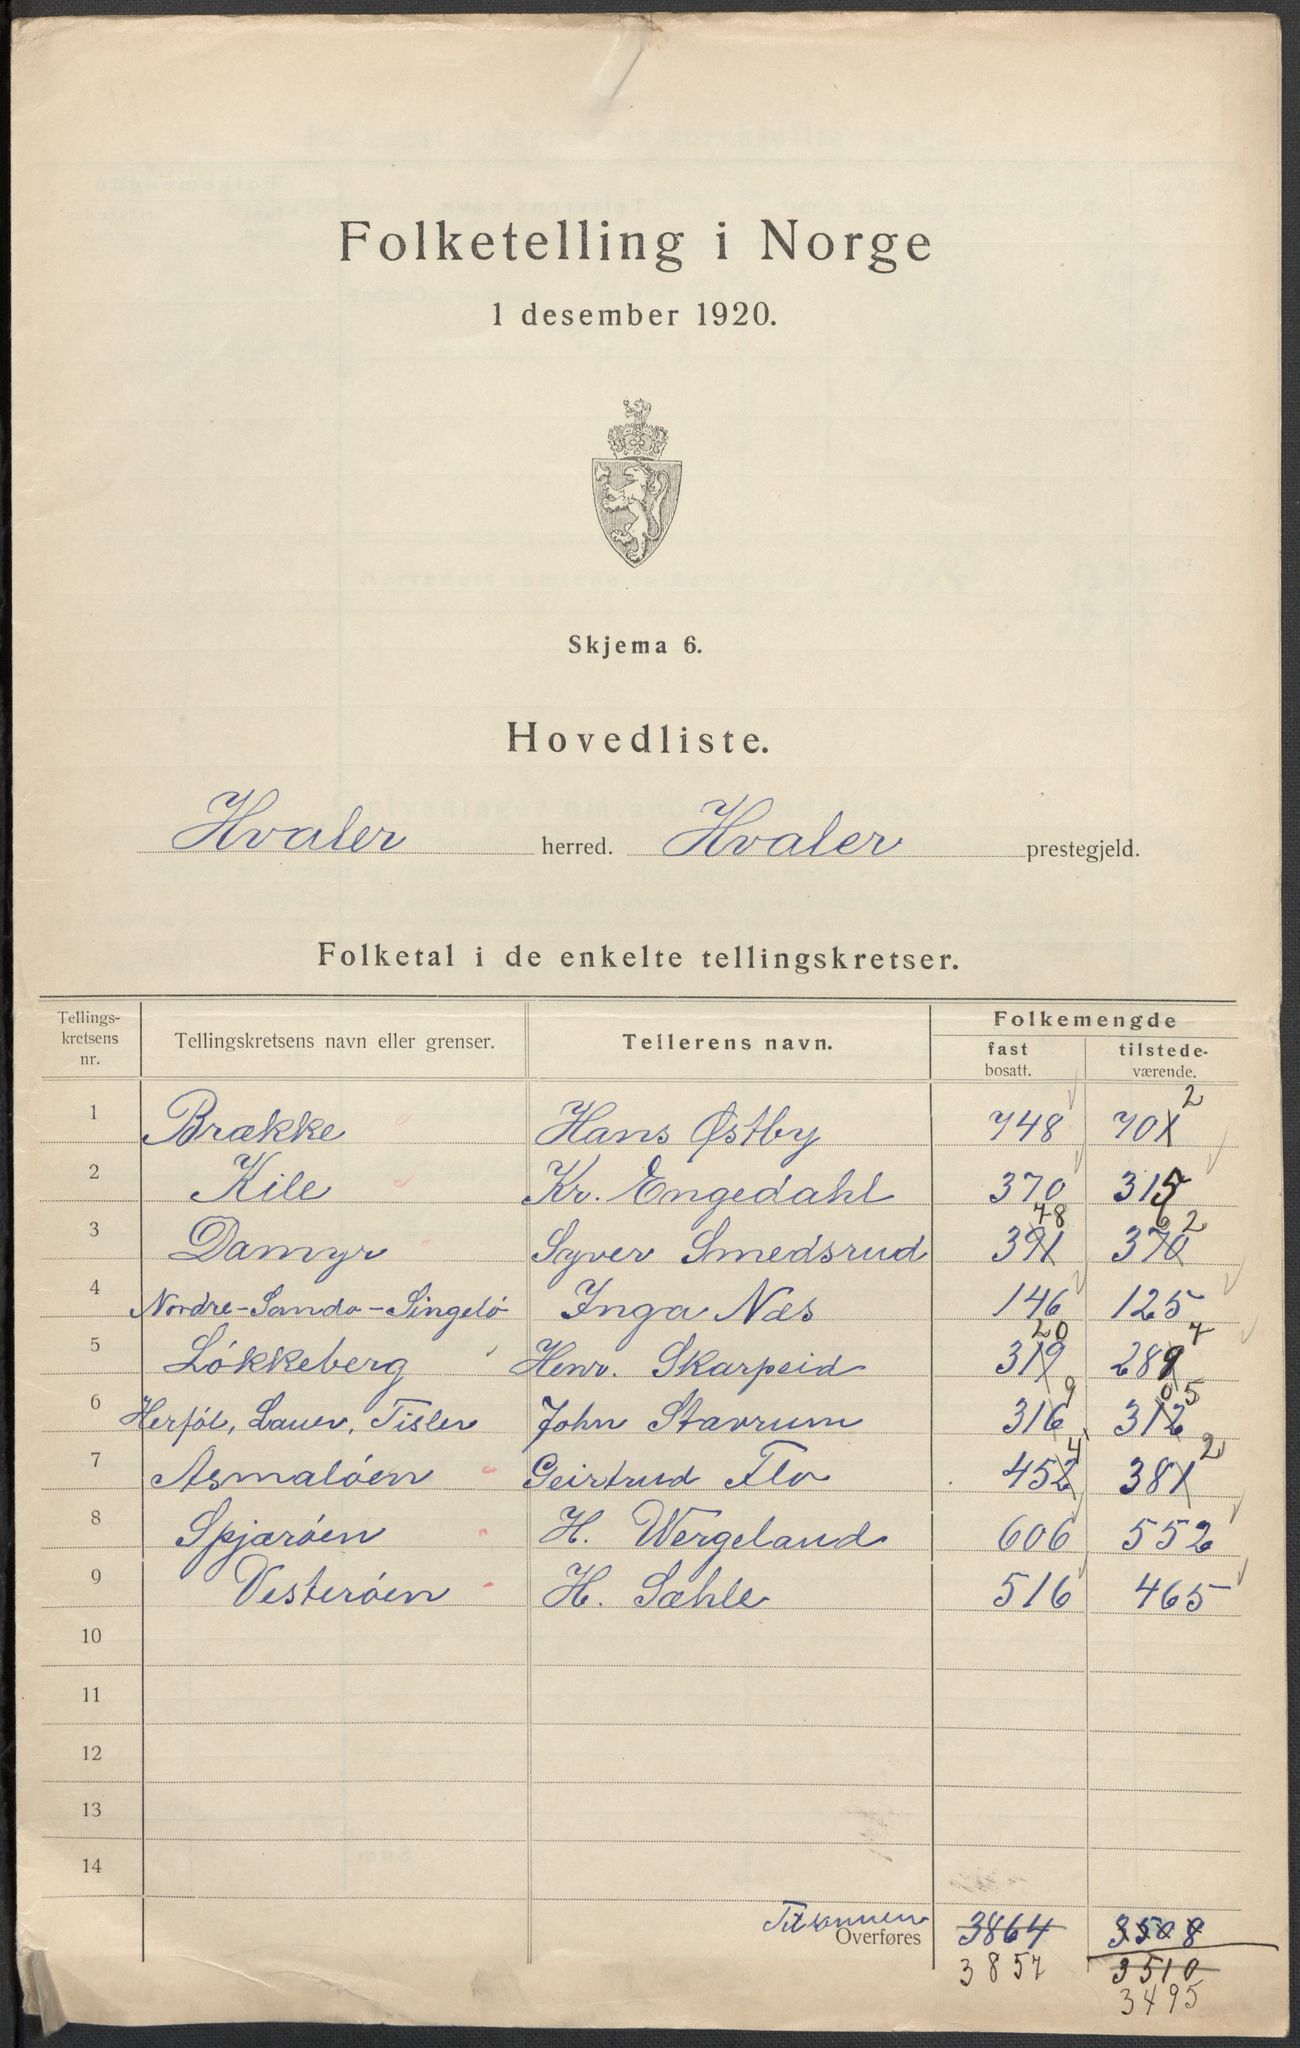 Folketelling i Norge
1 desember 1920.
Skjema 6.
Hovedliste.
Hvaler herred. Hvaler prestegjeld.
Folketal i de enkelte tellingskretser.
Tellings-
kretsens
nr.
Tellingskretsens navn eller grenser.
Tellerens navn.
Folkemengde
fast
bosatt.
tilstede-
værende.
2
1 Brække Hans Østby 748 701
2 Kile Kr. Engedahl 370 315
78 62
3 Damyr Syver Smedsrud 391 370
4 Nordre-Sandø-Singelö Inga Næs 146 125
20 7
5 Lökkeberg Henr. Skarpeid 319 289
9 05
6 Herföl, Lauer, Tisler John Stavrum 316 312
4 2
7 Asmalöen Geirtrud Flo 452 381
8 Spjæröen H. Wergeland 606 552
9 Vesteröen H. Sæhle 516 465
10
11
12
13
14
Tilsammen
Overføres 3864 3508
3857 3510
3495